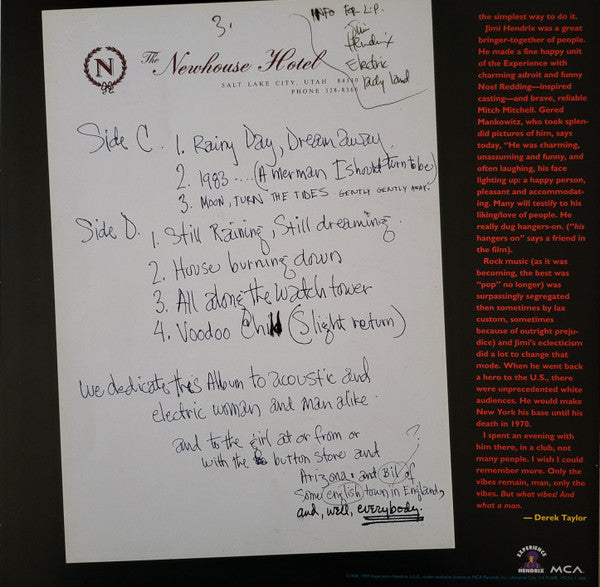 3.
INFO FOR L.P.
Jimi
Hendrix
Electric
Lady land
N
The Newhouse Hotel
SALT LAKE CITY, UTAH 84110
PHONE 328-8366
Side C. 1. Rainy Day, Dream away.
2. 1983.... (A merman I should turn to be)
3. MOON, TURN THE TIDES GENTLY GENTLY AWAY.
Side D. 1. Still Raining, Still dreaming.
2. House burning down
3. All along the watch tower
4. Voodoo Child (Slight return)
We dedicate this Album to acoustic and
electric woman and man alike.
and to the girl at or from or
with the button store and
?
Arizona: and Bil of
Some english town in England,
and, well, everybody.
the simplest way to do it.
Jimi Hendrix was a great
bringer-together of people.
He made a fine happy unit
of the Experience with
charming adroit and funny
Noel Redding—inspired
casting—and brave, reliable
Mitch Mitchell. Gered
Mankowitz, who took splen-
did pictures of him, says
today, "He was charming,
unassuming and funny, and
often laughing, his face
lighting up: a happy person,
pleasant and accommodat-
ing. Many will testify to his
liking/love of people. He
really dug hangers-on. ("his
hangers on" says a friend in
the film).
Rock music (as it was
becoming, the best was
"pop" no longer) was
surpassingly segregated
then sometimes by lax
custom, sometimes
because of outright preju-
dice) and Jimi's eclecticism
did a lot to change that
mode. When he went back
a hero to the U.S., there
were unprecedented white
audiences. He would make
New York his base until his
death in 1970.
I spent an evening with
him there, in a club, not
many people. I wish I could
remember more. Only the
vibes remain, man, only the
vibes. But what vibes! And
what a man.
— Derek Taylor
EXPERIENCE
HENDRIX
MCA